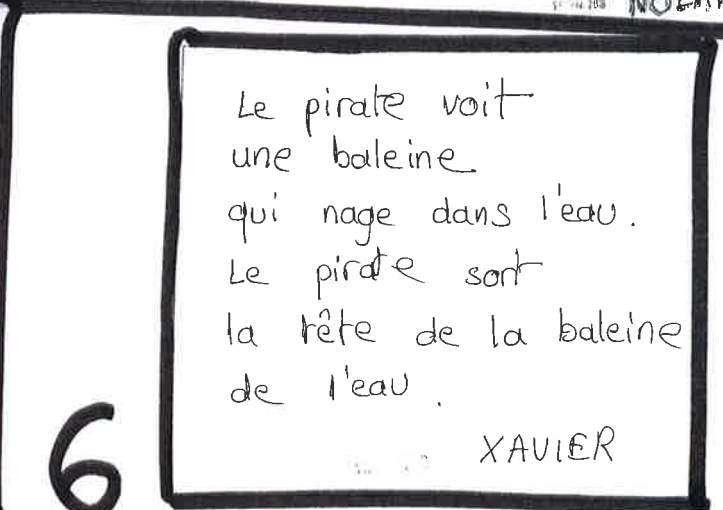 Le pirate voit
une baleine
qui nage dans l'eau.
Le pirate sort
la tête de la baleine
de l'eau.
XAVIER
6